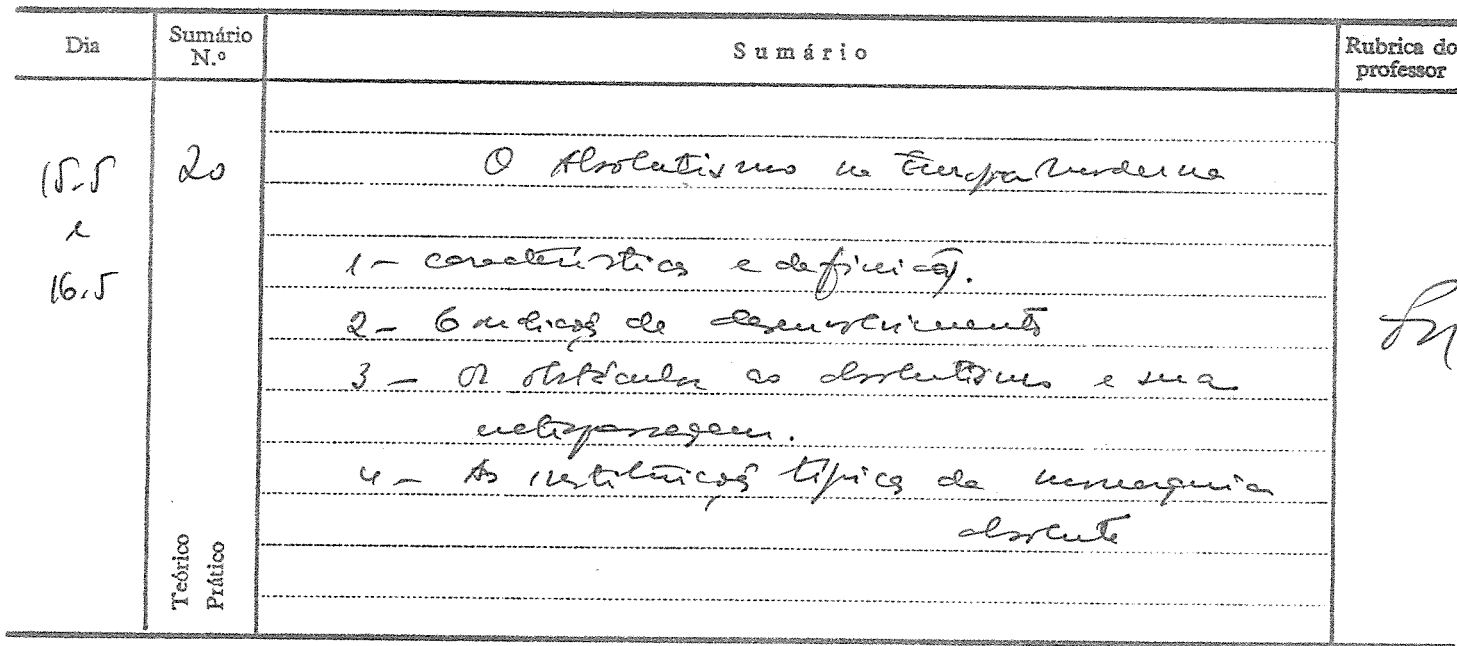 Dia
Sumário N.º
Sumário
Rubrica do professor
15.5
e
16.5
20
O Absolutismo na Europa Moderna
1 - características e definição.
2 - Condições de desenvolvimento
3 - Os obstáculos ao absolutismo e sua
ultrapassagem.
4 - As instituições típicas da monarquia
absoluta
Teórico
Prático